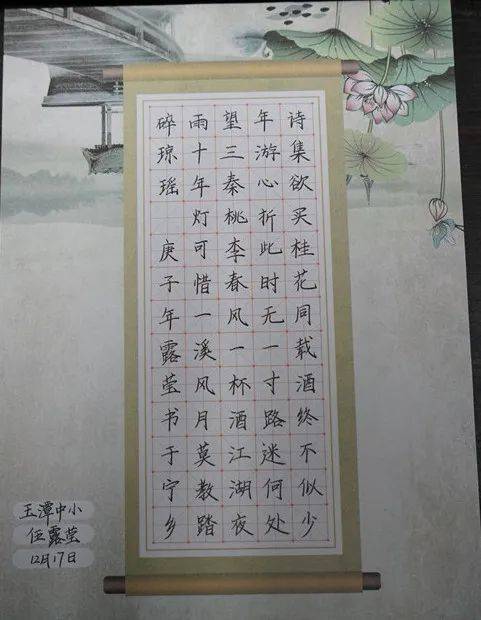 诗集欲买桂花同载酒终不似少
年游心折此时无一寸路迷何处
望三秦桃李春风一杯酒江湖夜
雨十年灯可惜一溪风月莫教踏
碎琼瑶 庚子年露莹书于宁乡
玉潭中小
伍露莹
12月17日